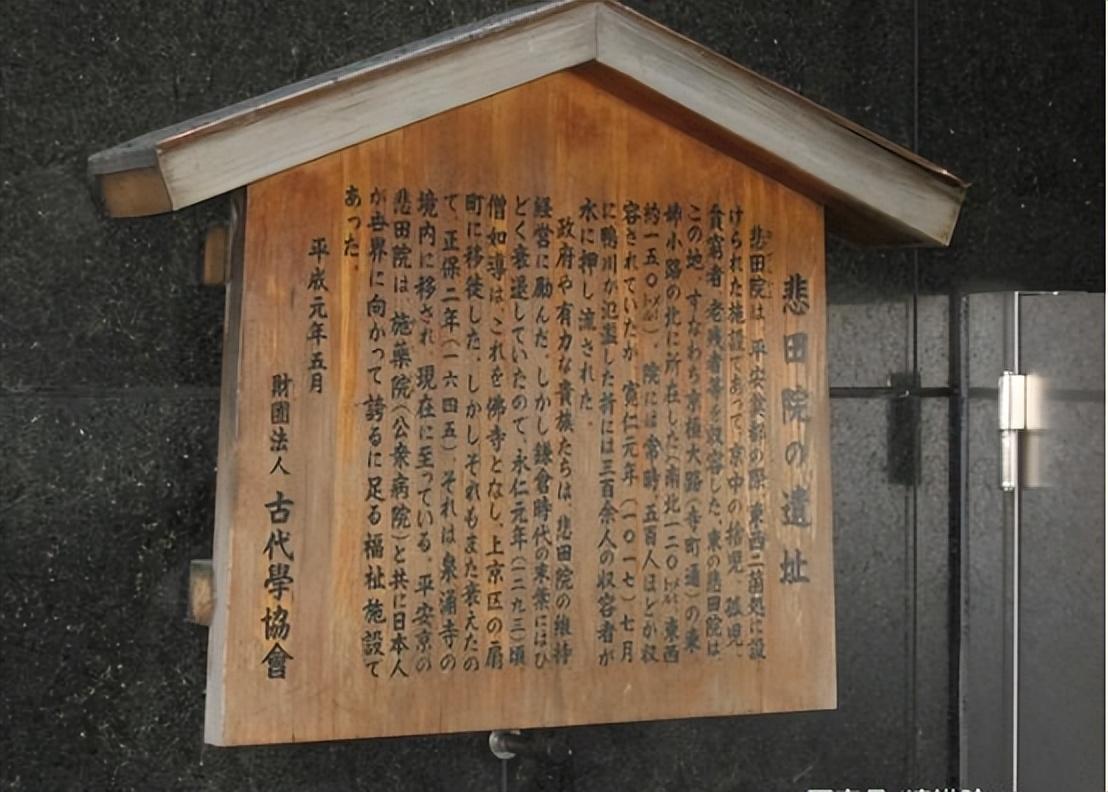 悲田院の遺址
悲田院は、平安奠都の際、東西二箇処に設
けられた施設であって、京中の捨児、孤児、
貧窮者、老残者等を収容した。東の悲田院は、
この地、すなわち京極大路(寺町通)の東、
姉小路の北に所在した(南北一二〇メートル、東西
約一五〇メートル)。院には常時、五百人ほどが収
容されていたが、寛仁元年(一〇一七)七月
に鴨川が氾濫した折には三百余人の収容者が
水に押し流された。
政府や有力な貴族たちは、悲田院の維持
経営に励んだ。しかし鎌倉時代の末葉にはひ
どく衰退していたので、永仁元年(一二九三)頃、
僧如導は、これを佛寺となし、上京区の扇
町に移徙した。しかしそれもまた衰えたの
で、正保二年(一六四五)それは泉涌寺の
境内に移され、現在に至っている。平安京の
悲田院は、施薬院(公衆病院)と共に日本人
が世界に向かって誇るに足る福祉施設で
あった。
平成元年五月
財団法人 古代學協會